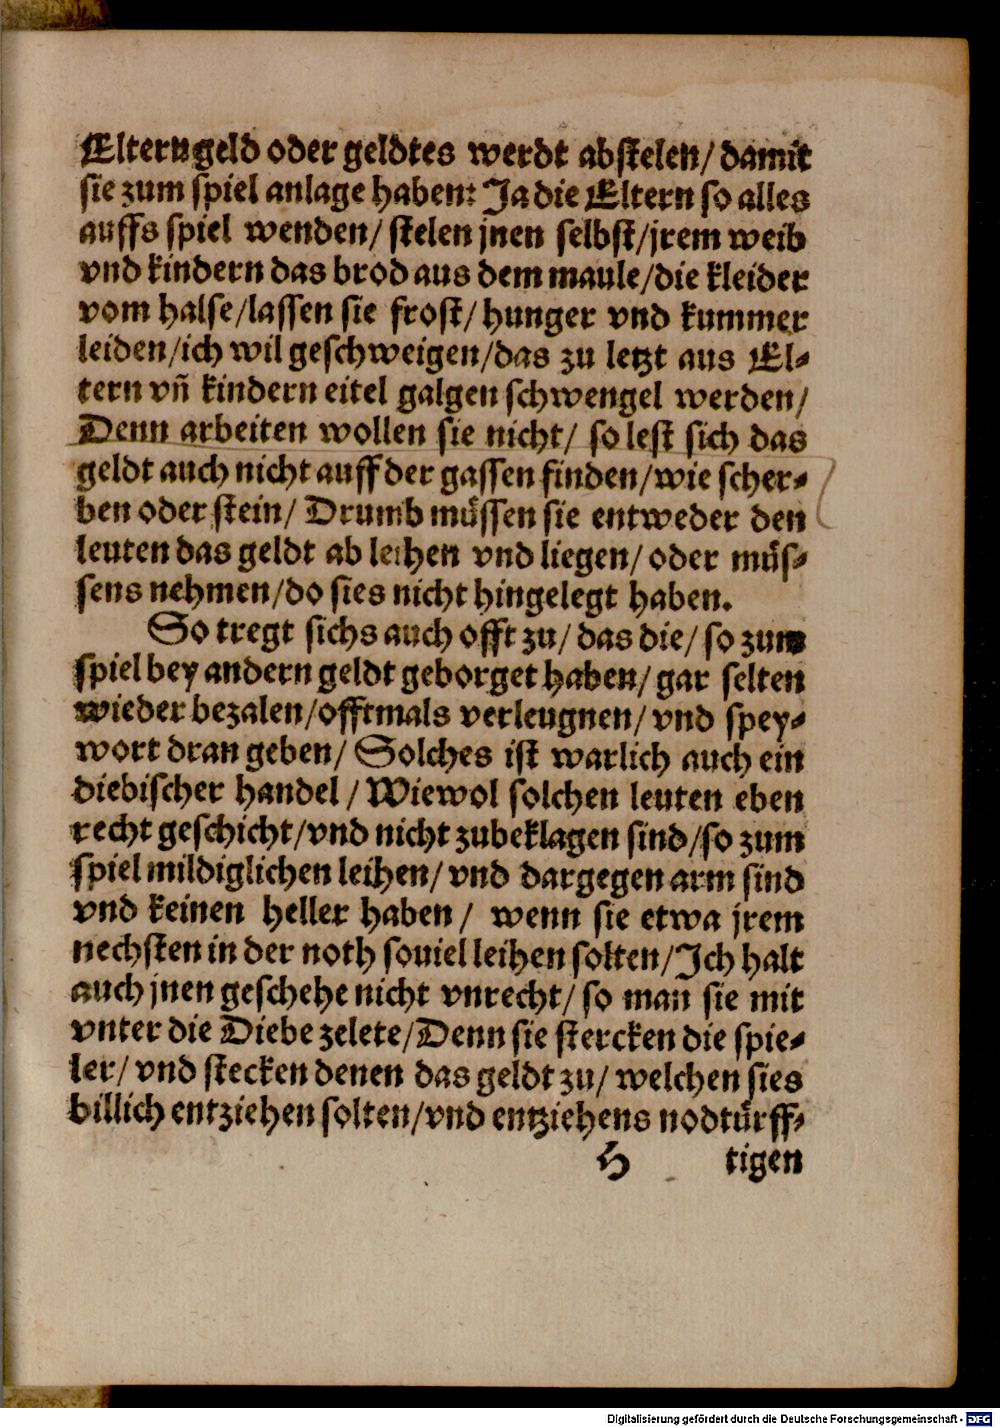 Eltern geld oder geldtes werdt abstelen/ damit
sie zum spiel anlage haben: Ja die Eltern so alles
auffs spiel wenden/ stelen jnen selbst/jrem weib
vnd kindern das brod aus dem maule/die kleider
vom halse/lassen sie frost/ hunger vnd kummer
leiden/ich wil geschweigen/das zu letzt aus El-
tern vñ kindern eitel galgen schwengel werden/
Denn arbeiten wollen sie nicht/ so lest sich das
geldt auch nicht auff der gassen finden/wie scher-
ben oder stein/ Drumb muͤssen sie entweder den
leuten das geldt ab leihen vnd liegen/ oder muͤs-
sens nehmen/do sies nicht hingelegt haben.
So tregt sichs auch offt zu/ das die/ so zum
spiel bey andern geldt geborget haben/ gar selten
wieder bezalen/offtmals verleugnen/ vnd spey-
wort dran geben/ Solches ist warlich auch ein
diebischer handel / Wiewol solchen leuten eben
recht geschicht/vnd nicht zubeklagen sind/so zum
spiel mildiglichen leihen/ vnd dargegen arm sind
vnd keinen heller haben/ wenn sie etwa jrem
nechsten in der noth souiel leihen solten/Ich halt
auch jnen geschehe nicht vnrecht/ so man sie mit
vnter die Diebe zelete/Denn sie stercken die spie-
ler/ vnd stecken denen das geldt zu/ welchen sies
billich entziehen solten/vnd entziehens nodtuͤrff-
H tigen
Digitalisierung gefördert durch die Deutsche Forschungsgemeinschaft - DFG